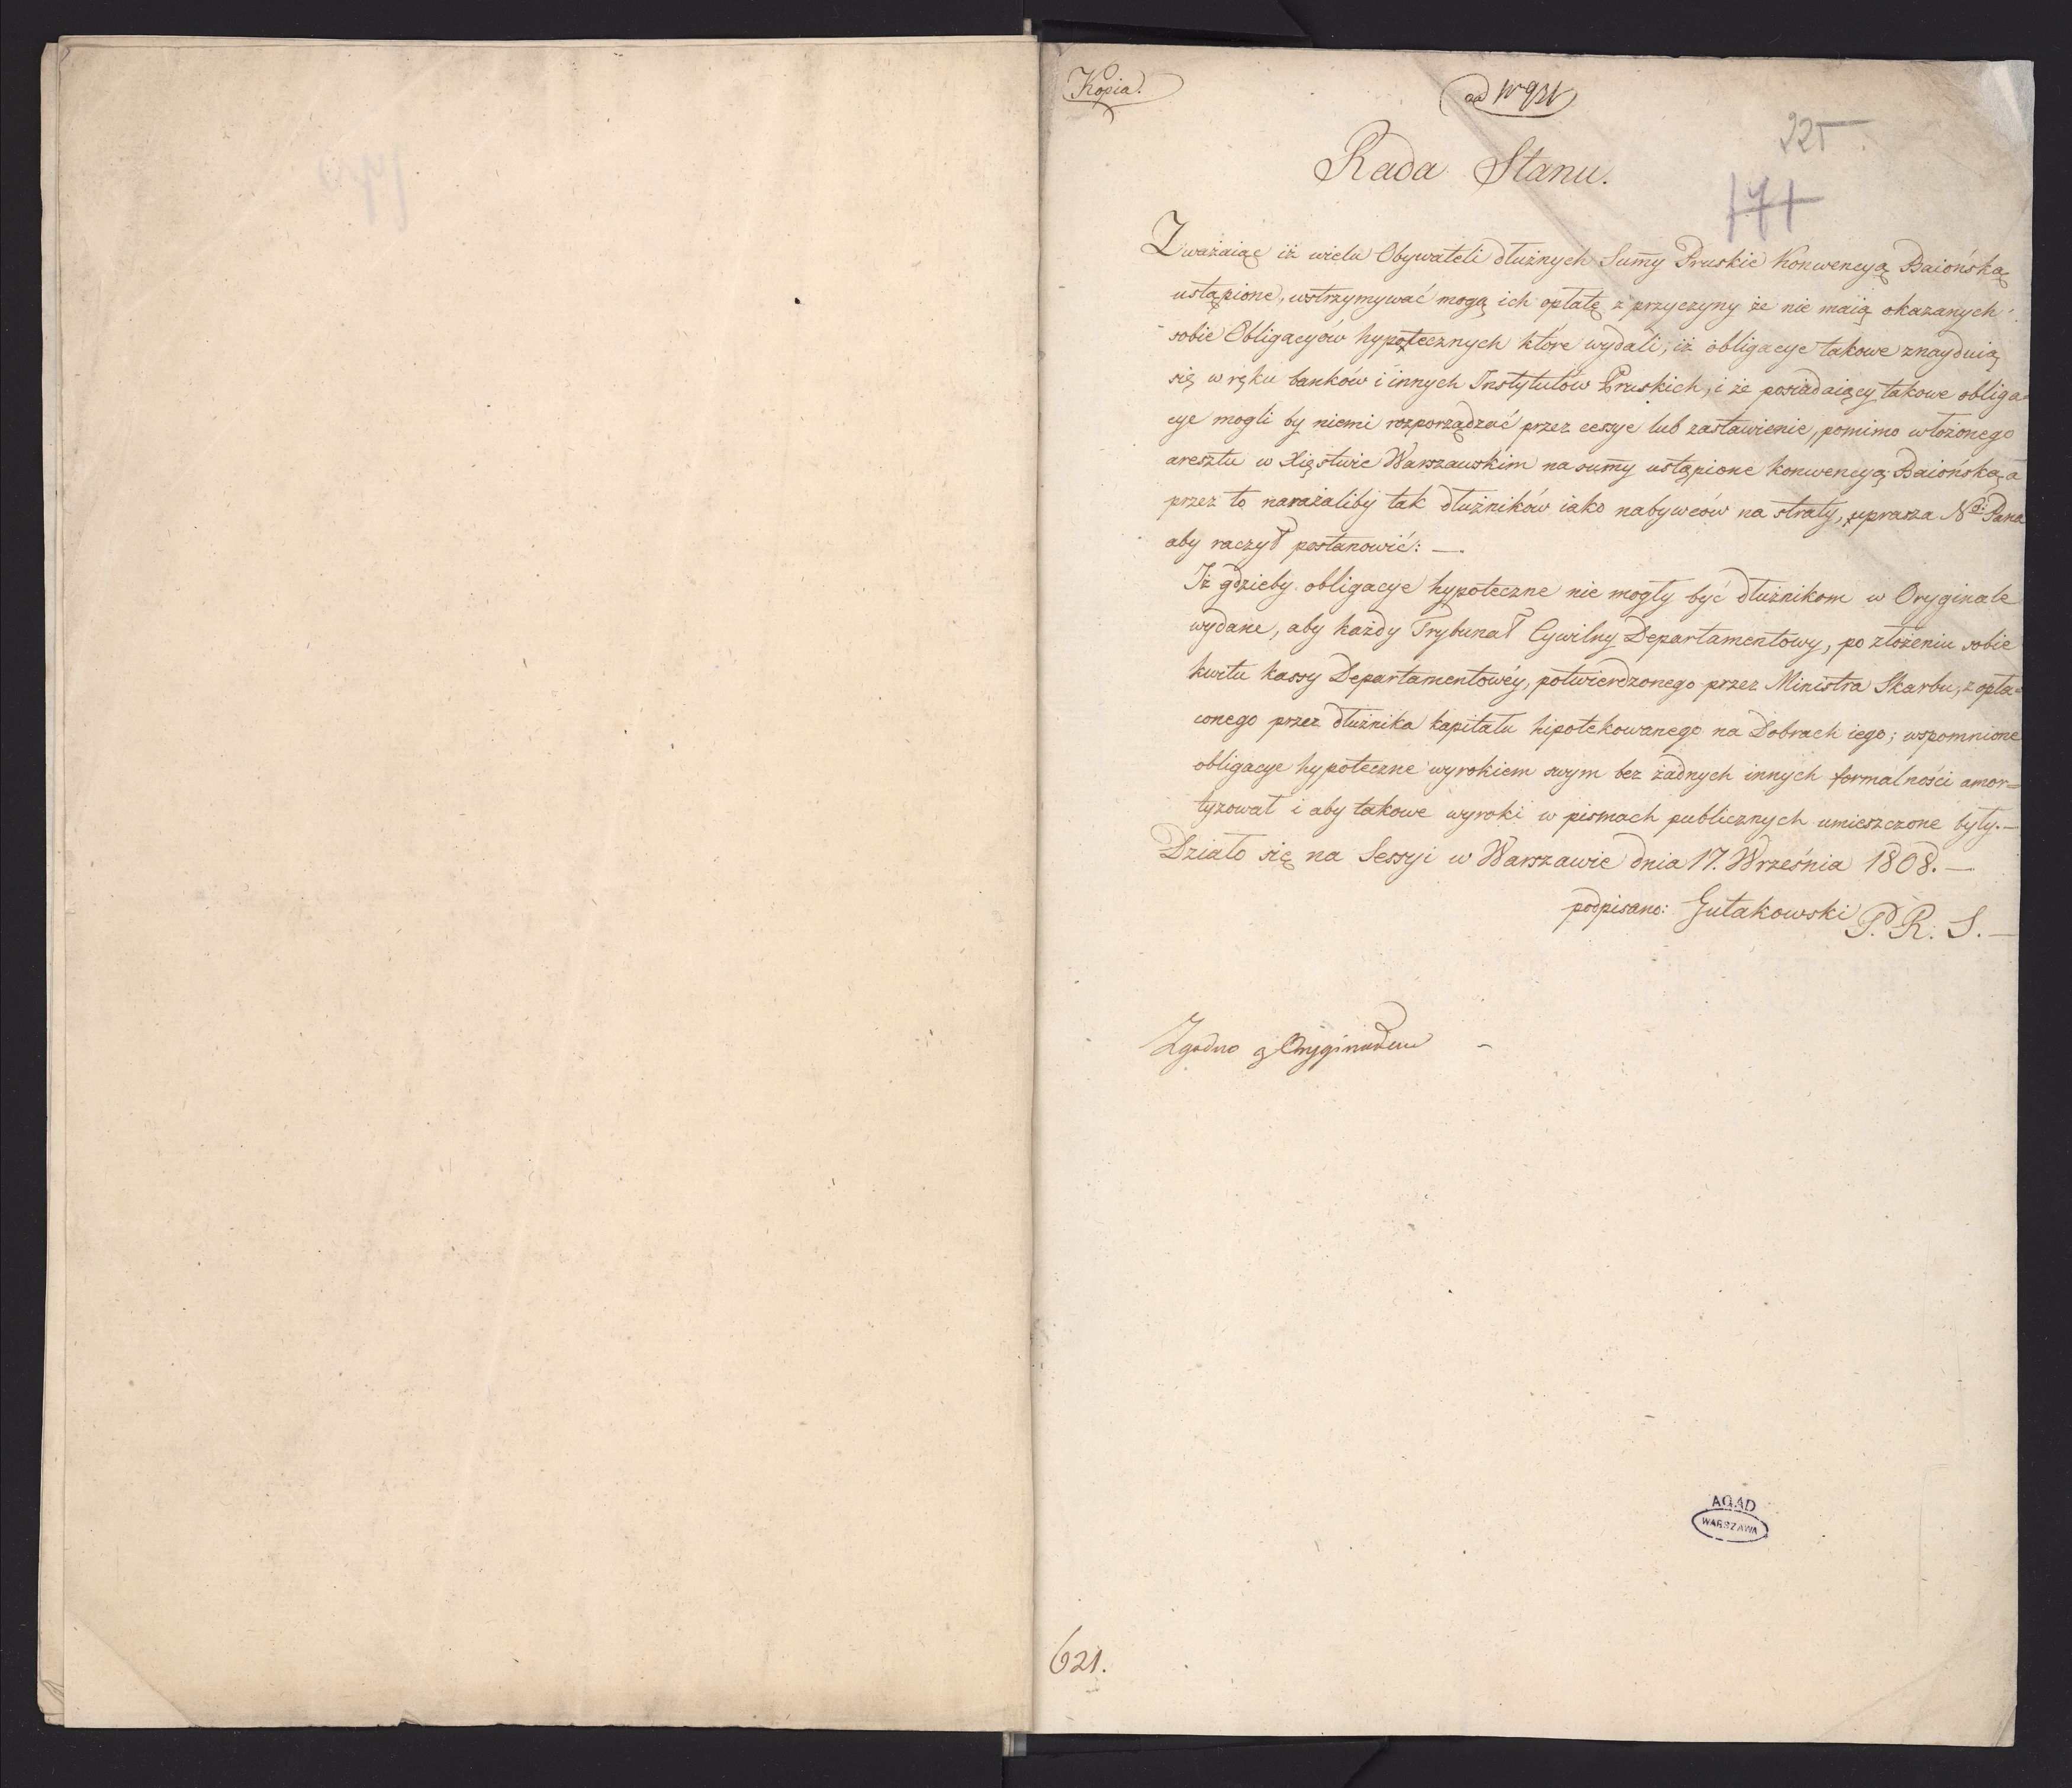 Kopia.
ad N 931
225
171
Rada Stanu.
Zważaiąc iż wielu Obywateli dłużnych Sumy Pruskie Konwencyą Baiońską
ustąpione, wstrzymywać mogą ich opłatę z przyczyny że nie maią okazanych
sobie Obligacyów hypotecznych które wydali, iż obligacye takowe znayduią
się w ręku banków i innych Instytutów Pruskich, i że posiadaiący takowe obliga=
cye mogli by niemi rozporządzać przez cessye lub zastawienie, pomimo włożonego
aresztu w Xięstwie Warszawskim na sumy ustąpione konwencyą Baiońską a
przez to narażaliby tak dłużników iako nabywców na straty, uprasza N. Pana
aby raczył postanowić: —.
Iż gdzieby obligacye hypoteczne nie mogły być dłużnikom w Oryginale
wydane, aby każdy Trybunał Cywilny Departamentowy, po złożeniu sobie
kwitu kassy Departamentowéy, potwierdzonego przez Ministra Skarbu, z opła=
conego przez dłużnika kapitału hipotekowanego na Dobrach iego; wspomnione
obligacye hypoteczne wyrokiem swym bez żadnych innych formalności amor=
tyzował i aby takowe wyroki w pismach publicznych umieszczone były.—
Działo się na Sessyi w Warszawie dnia 17. Września 1808. —
podpisano: Gutakowski P. R. S. —
Zgodno z Oryginałem —
AGAD
WARSZAWA
621.